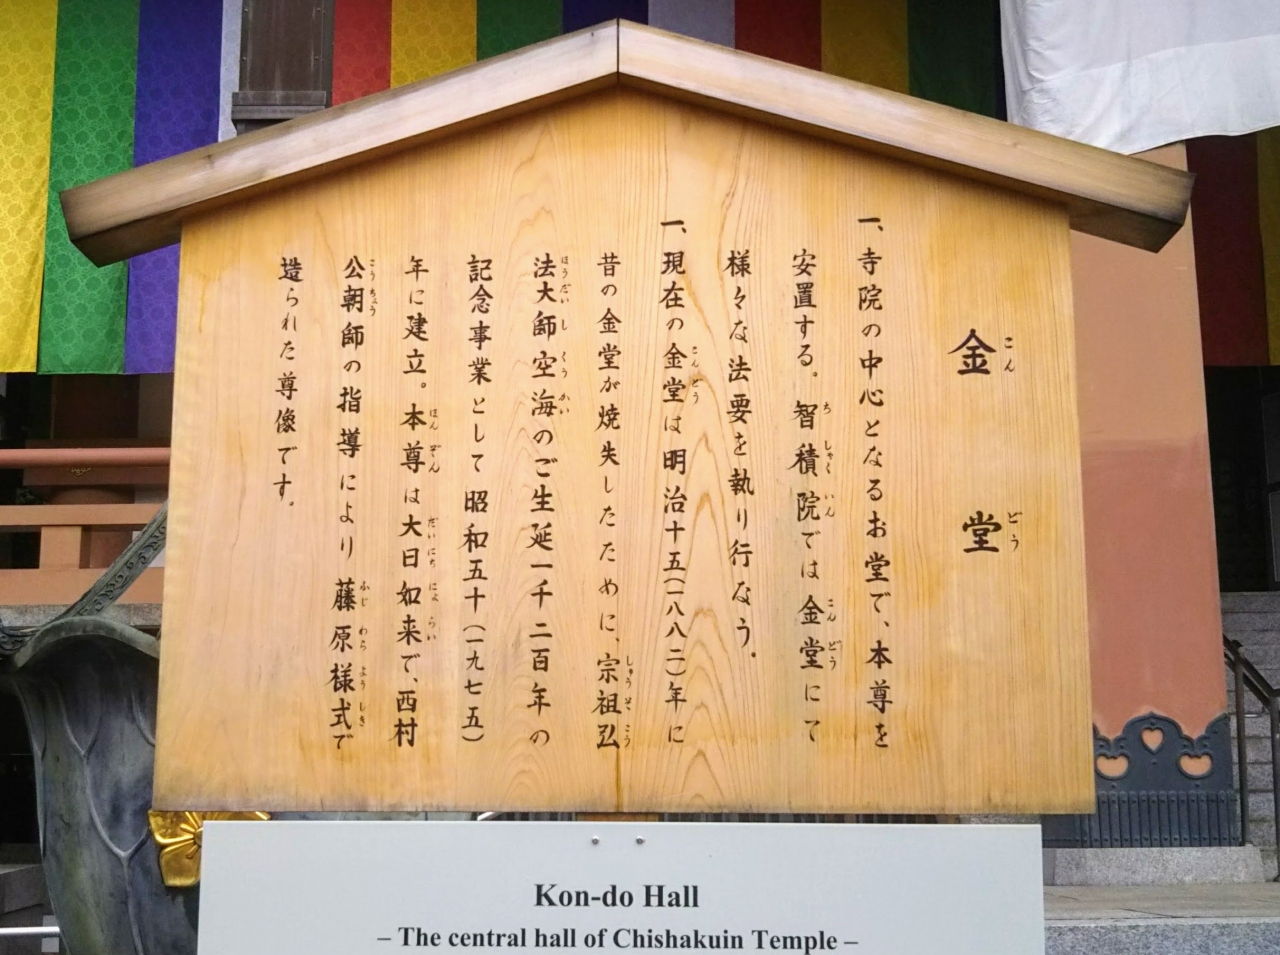 金堂
一、寺院の中心となるお堂で、本尊を
安置する。智積院では金堂にて
様々な法要を執り行なう。
一、現在の金堂は明治十五(一八八二)年に
昔の金堂が焼失したために、宗祖弘
法大師空海のご生延一千二百年の
記念事業として昭和五十(一九七五)
年に建立。本尊は大日如来で、西村
公朝師の指導により藤原様式で
造られた尊像です。
Kon-do Hall
– The central hall of Chishakuin Temple –